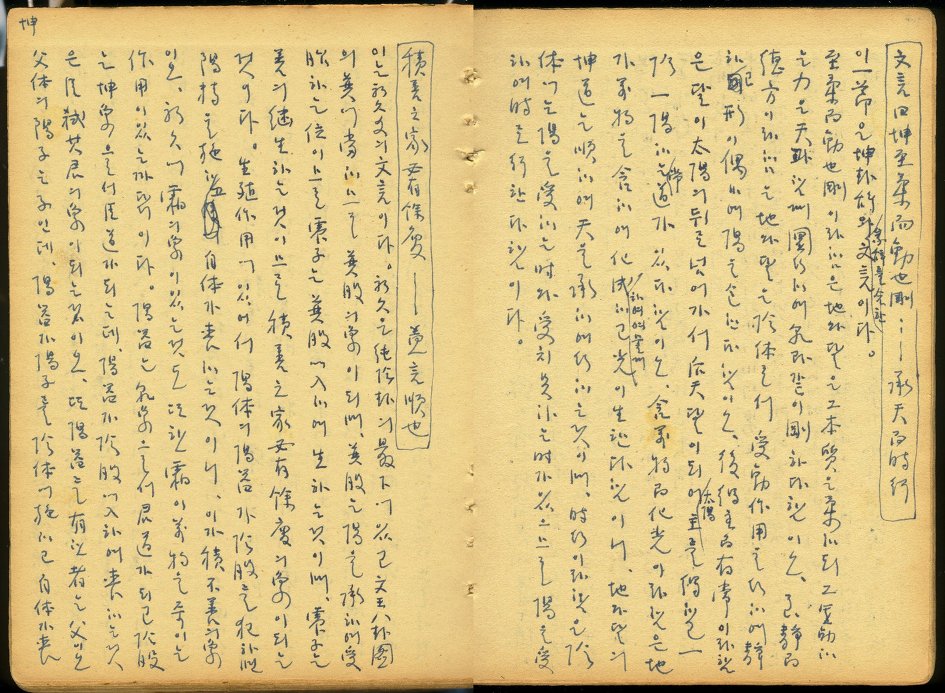 文言曰坤至柔而動也剛 —— 承天而時行
이 一節은 坤卦辭와 文言이다。
至柔而動也剛이라 함은 地와 달은 그 本質은 柔하되 그 運動하
는 力은 天과 함께 圓行하여 乾과 같이 剛하다 함이오、至靜而
德方이라 함은 地와 달은 陰体로서 受動作用을 行하여 靜
하고 形이 偶하여 陽을 함이오、後得主而有常이라 함
은 달이 太陽의 뒤를 넘어가서 后天달이 되어 太陽主를 得하고 一
陰一陽하는 常道가 있다 함이오、含萬物而化光이라 함은 地
가 萬物을 含하여 化成하고 光이 生한다 함이니、地와 달의
坤道는 順하여 天을 承하여 行하는 것이며、時行이라 함은 陰
体에는 陽을 受하는 時와 受치 못하는 時가 있으므로 陽을 受
하여 時로 行한다 함이다。
坤
積善之家必有餘慶 —— 蓋言順也
이는 初六爻의 文言이다。初六은 純陰卦의 最下에 있고 文王八卦圖
의 巽에 當하므로 巽股의 象이 되며、巽股는 陽을 承하여 受
胎하는 位이므로 震子는 巽股에 入하여 生하는 것이며、震子는
善의 継生하는 것이므로 積善之家必有餘慶의 象이 되는
것이다。生殖作用에 있어서 陽体의 陽器가 陰股를 犯하면
陽精을 施하고 自体가 喪하는 것이니、이가 積不善의 象
이오、初六에 霜의 象이 있는 것도 또한 霜이 萬物을 죽이는
作用이 있는 까닭이다。陽器는 乾象으로서 君道가 되고 陰股
는 坤象으로서 臣道가 되는데、陽器가 陰股에 入하여 喪하는 것
은 臣弑其君의 象이 되는 것이오、또 陽器를 有한 者는 父이오
父体의 陽子는 子인데、陽器가 陽子를 陰体에 施하고 自体가 喪